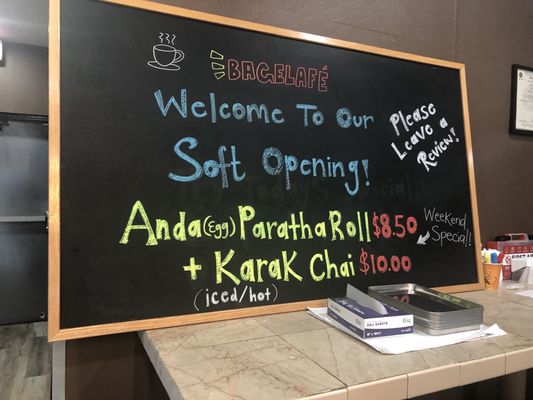 BAGELAFÉ
Welcome To Our
Soft Opening!
Please
Leave a
Review!
Anda (Egg) Paratha Roll $8.50
+ Karak Chai $10.00
(iced/hot)
Weekend
Special!
FIRST AID